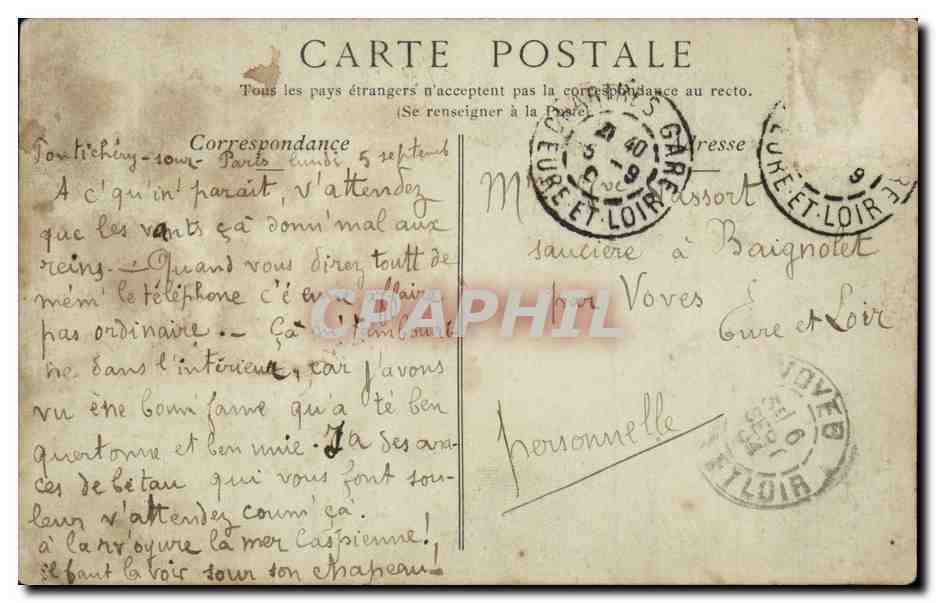 CARTE POSTALE
Tous les pays étrangers n'acceptent pas la correspondance au recto.
(Se renseigner à la Poste)
Correspondance
Adresse
Pontichéry-sour-Paris lundi 5 septemb
A c'qu'in' paraît, v'attendez
que les vants çà donn'mal aux
reins. — Quand vous direz toutt de
mém' le téléphone c'é eune affaire
pas ordinaire. — Çà m'tembourt
ne dans l'intérieur, car j'avons
vu ène bonn'fame qu'a té ben
quertonne et ben unie. Ya des
ces de bétau qui vous font sou-
leur v'attendez coum' çà.
à la rv'oyure la mer Caspienne!
il faut la voir sour son chapeau!
saucière à Baignolet
par Voves
Eure et Loir
personnelle
CHARTRES GARE
EURE-ET-LOIR
EURE-ET-LOIR
VOVES
6
SEPT
04
ET LOIR
CPAPHIL